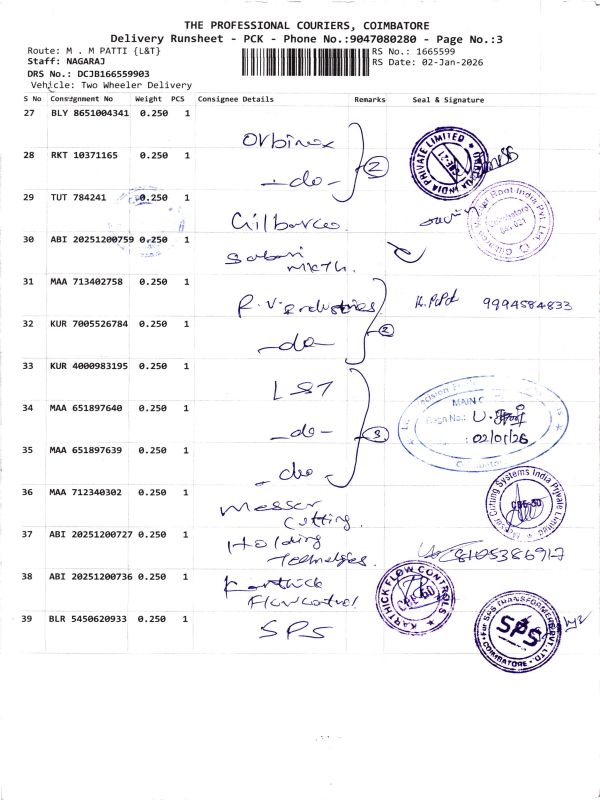 THE PROFESSIONAL COURIERS, COIMBATORE
Delivery Runsheet - PCK - Phone No.:9047080280 - Page No.:3
Route: M . M PATTI {L&T} RS No.: 1665599
Staff: NAGARAJ RS Date: 02-Jan-2026
DRS No.: DCJB166559903
Vehicle: Two Wheeler Delivery
S No Consignment No Weight PCS Consignee Details Remarks Seal & Signature
27 BLY 8651004341 0.250 1
Orbinox
INDIA PRIVATE LIMITED
28 RKT 10371165 0.250 1
-do- 2
29 TUT 784241 0.250 1
Gilbarco
Root India Pvt. Ltd.
Coimbatore
641 021
30 ABI 20251200759 0.250 1
Sabari
31 MAA 713402758 0.250 1
R.V. Industries 9994584833
32 KUR 7005526784 0.250 1
-do- 2
33 KUR 4000983195 0.250 1
L&T
34 MAA 651897640 0.250 1
-do- 3
MAIN
02/01/26
35 MAA 651897639 0.250 1
-do-
36 MAA 712340302 0.250 1
Messer
Cutting
Messer Cutting Systems India Private Limited
37 ABI 20251200727 0.250 1
Holding
Technologies 8105386917
38 ABI 20251200736 0.250 1
Karthick
Flow Control
KARTHICK FLOW CONTROLS
39 BLR 5450620933 0.250 1
SPS
For SPS TRANSFORMERS PVT. LTD.
SPS
COIMBATORE